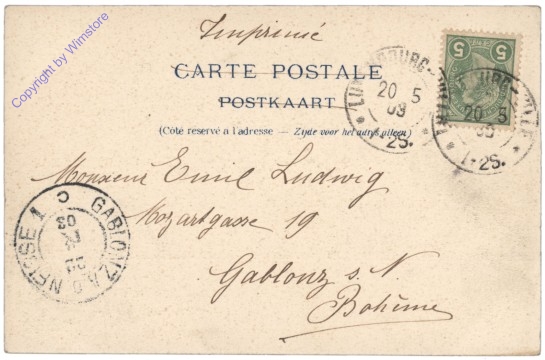 Copyright by Wimstore
Imprimé
CARTE POSTALE
POSTKAART
(Côté reservé à l'adresse – Zijde voor het adres alleen)
5 5
LUXEMBOURG-VILLE
20 5
03
1-2S.
LUXEMBOURG-VILLE
20 5
03
1-2S.
Monsieur Emil Ludwig
Mozartgasse 19
Gablonz s. N.
Bohème
GABLONZ A.D. NEISSE 1
03
C